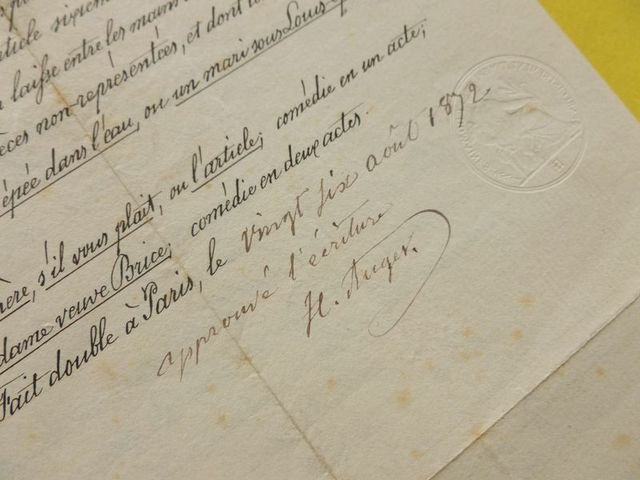 article sixième
laisse entre les mains
pièces non représentées, et dont
épée dans l'eau, ou un mari sous Louis
s'il vous plait, ou l'article; comédie en un acte;
dame veuve Brice; comédie en deux actes.
Fait double à Paris, le vingt six août 1872
approuvé l'écriture
H. Auger.